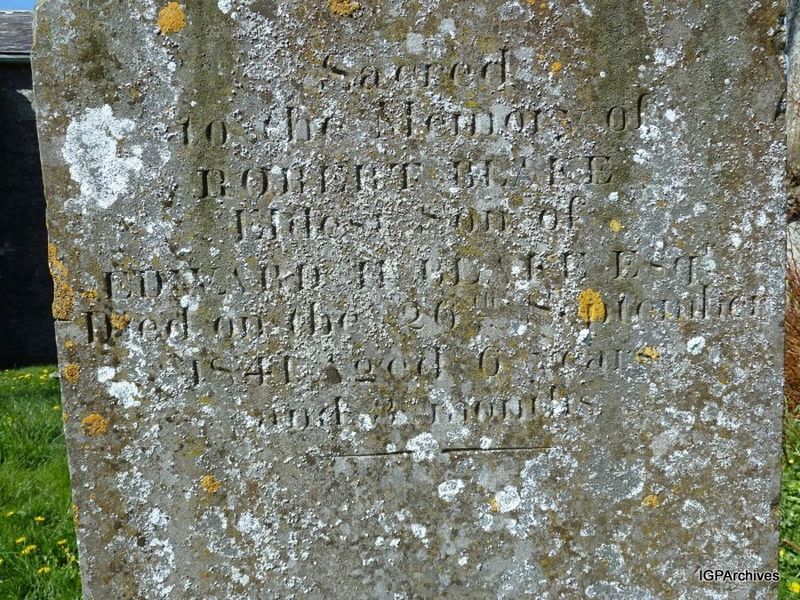 Sacred
to the Memory of
ROBERT BLAKE
Eldest Son of
EDWARD H. BLAKE Esqr
Died on the 26th September
1841 Aged 6 years
and months
IGPArchives